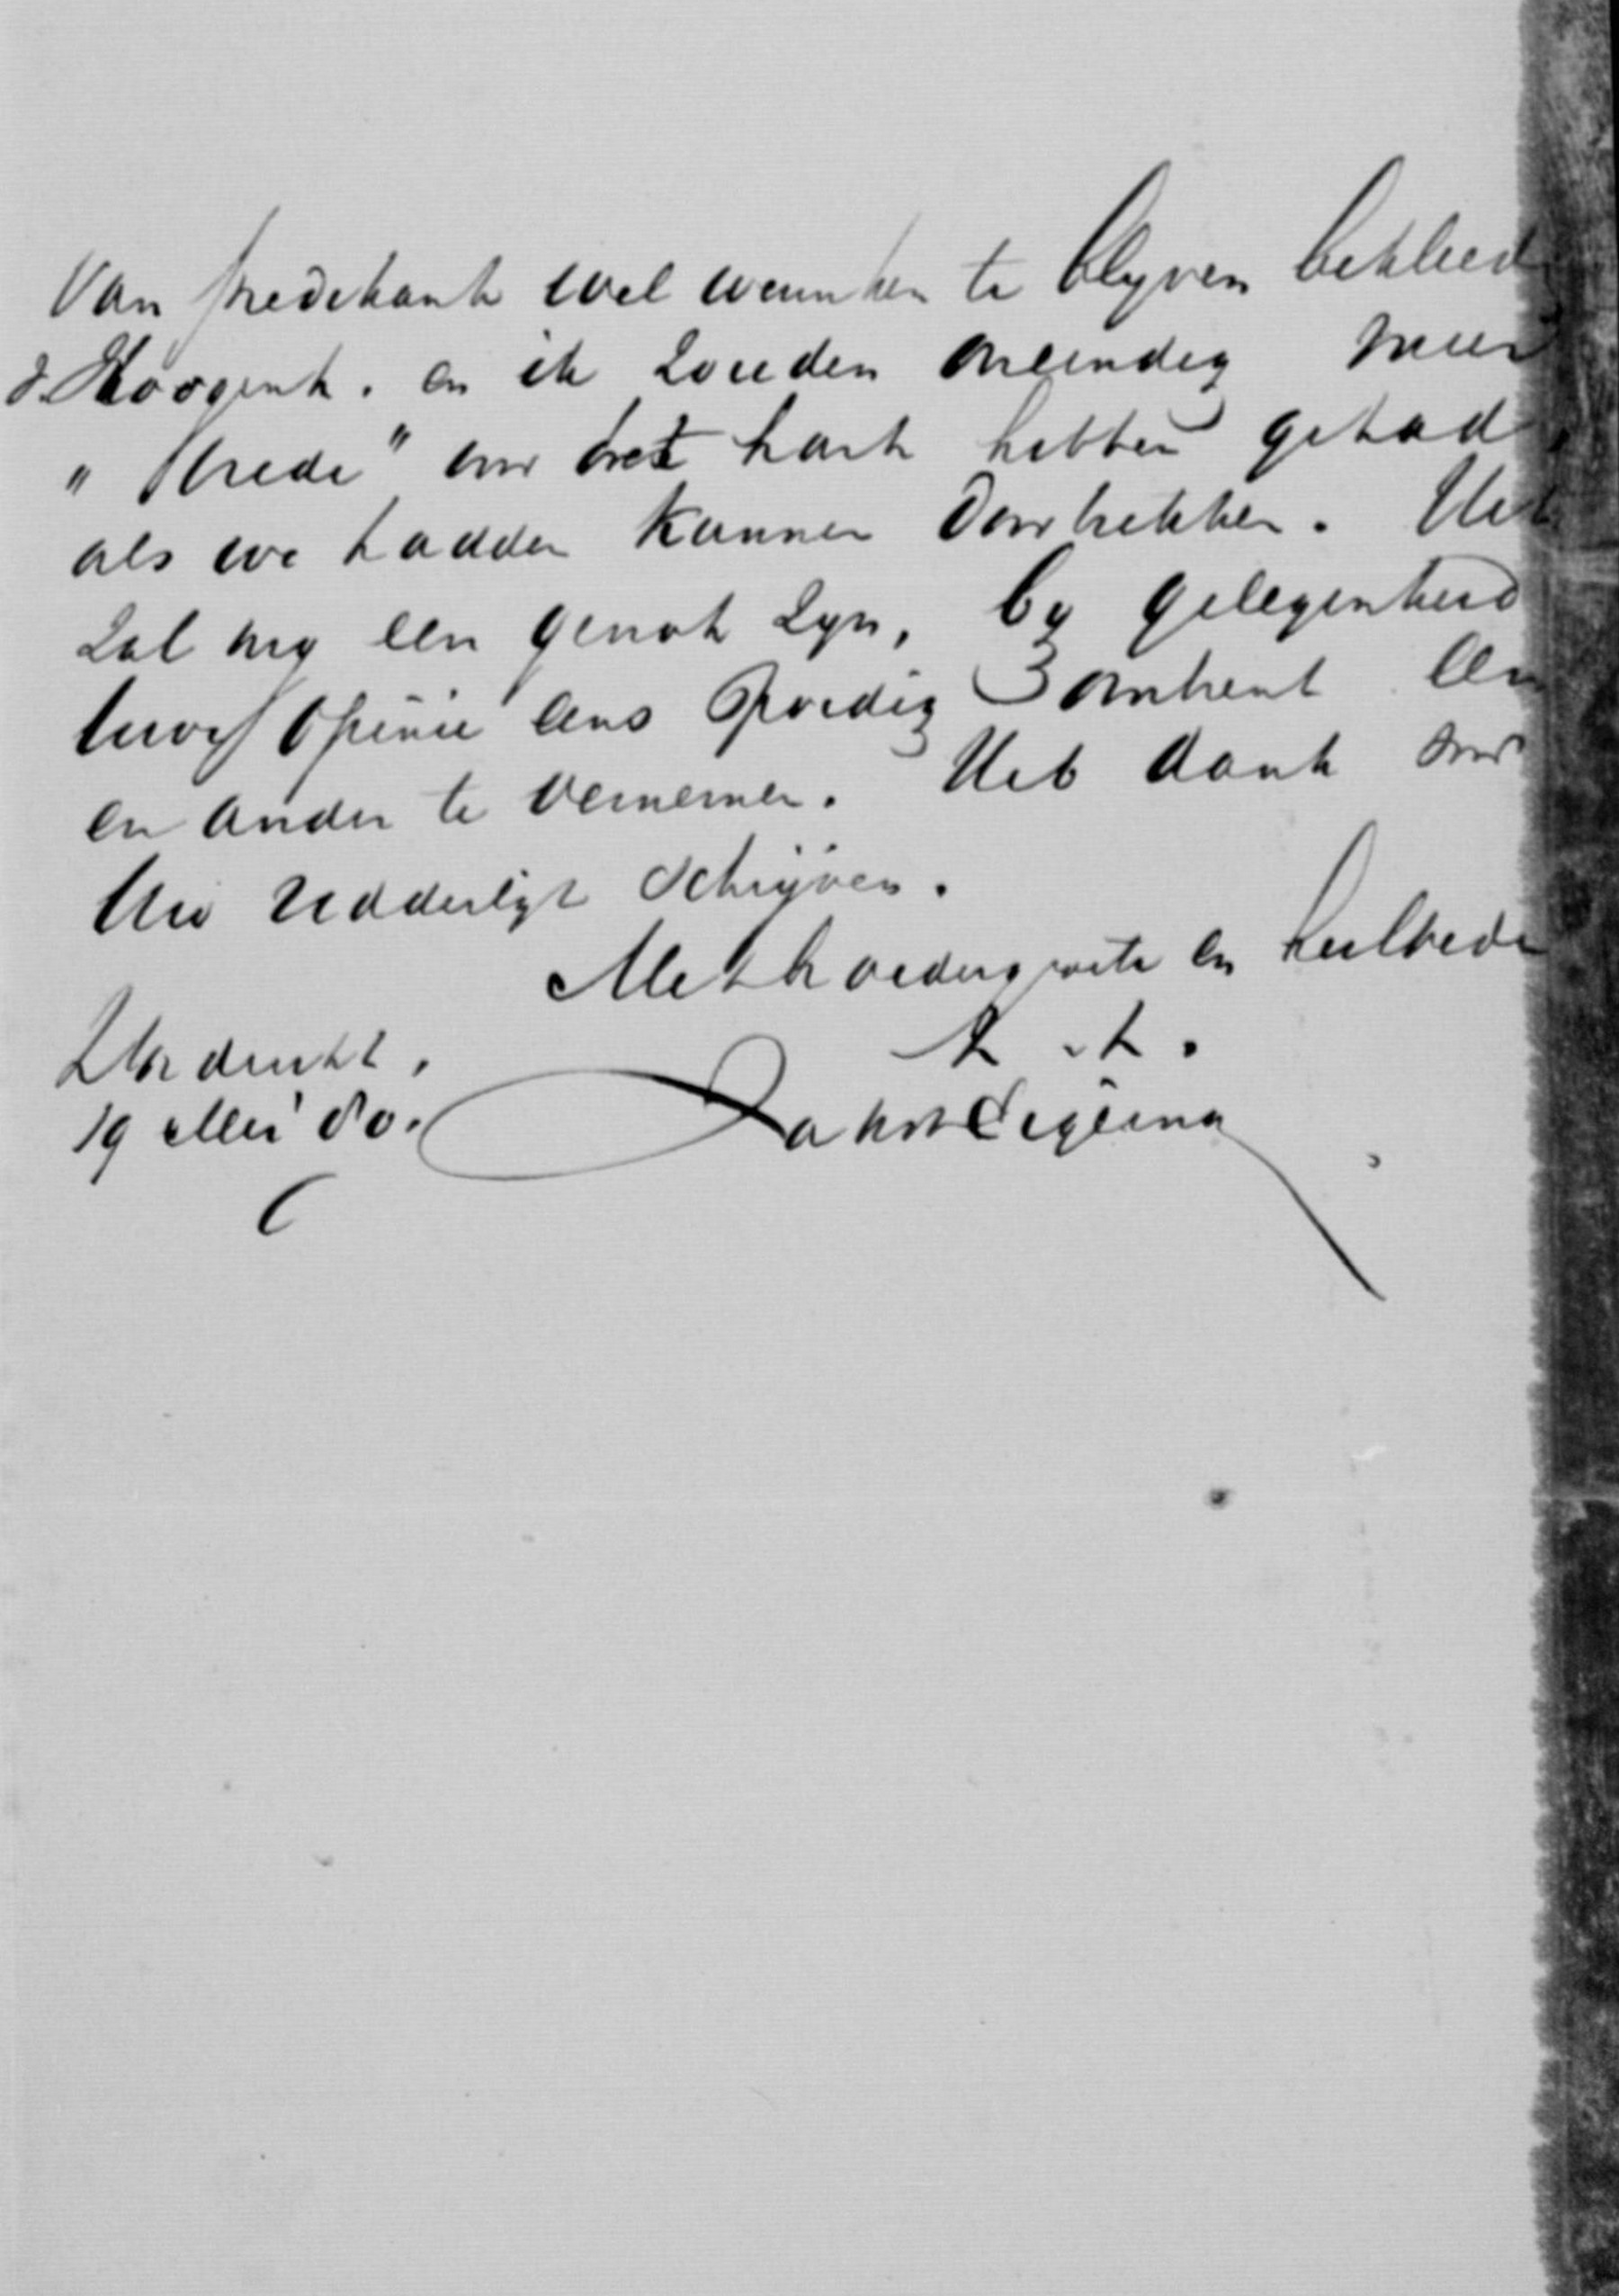 Van predikant wel wenschen te blyven bekleed
d. Hoogenh. en ik zouden oneindig meer
"Vrede" in het hart hebben gehad
als we hadden kunnen doortrekken. Het
zal my een genot zyn, by gelegenheid
Uwe opinie eens spoedig omtrent een
en ander te vernemen. Heb dank voor
Uw ridderlyk schrijven.
Met broedergroete en heilbede
t. t.
Dordrecht.
19 Mei 80.
Jakob Eigeman